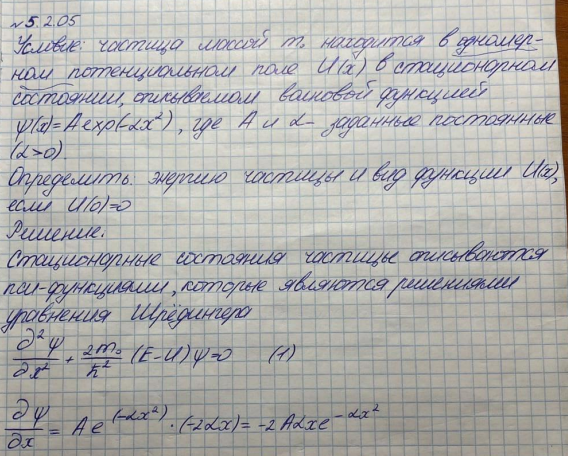 №5.2.05
Условие: частица массой m₀ находится в одномер-
ном потенциальном поле U(x) в стационарном
состоянии, описываемом волновой функцией
ψ(x)=A exp(-αx²), где A и α - заданные постоянные
(α>0).
Определить: энергию частицы и вид функции U(x),
если U(0)=0
Решение.
Стационарные состояния частицы описываются
пси-функциями, которые являются решениями
уравнения Шрёдингера
∂²ψ/∂x² + 2m₀/ħ² (E-U)ψ=0 (1)
∂ψ/∂x = Ae^(-αx²) · (-2αx) = -2Aαxe^-αx²